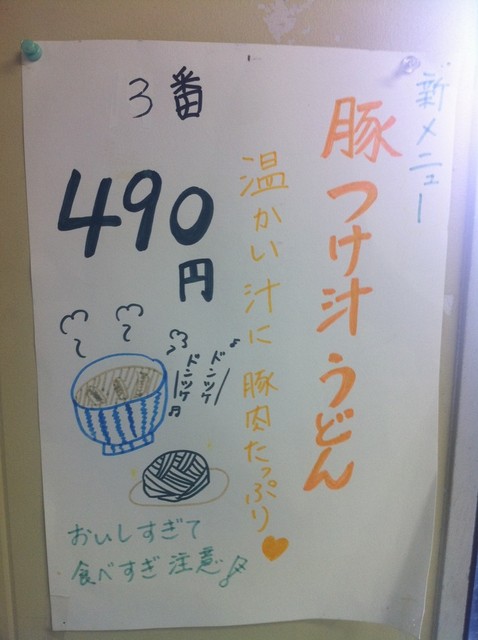 新メニュー
豚つけ汁うどん
温かい汁に豚肉たっぷり
3番
490
円
ドンツケ
ドンツケ
おいしすぎて
食べすぎ注意